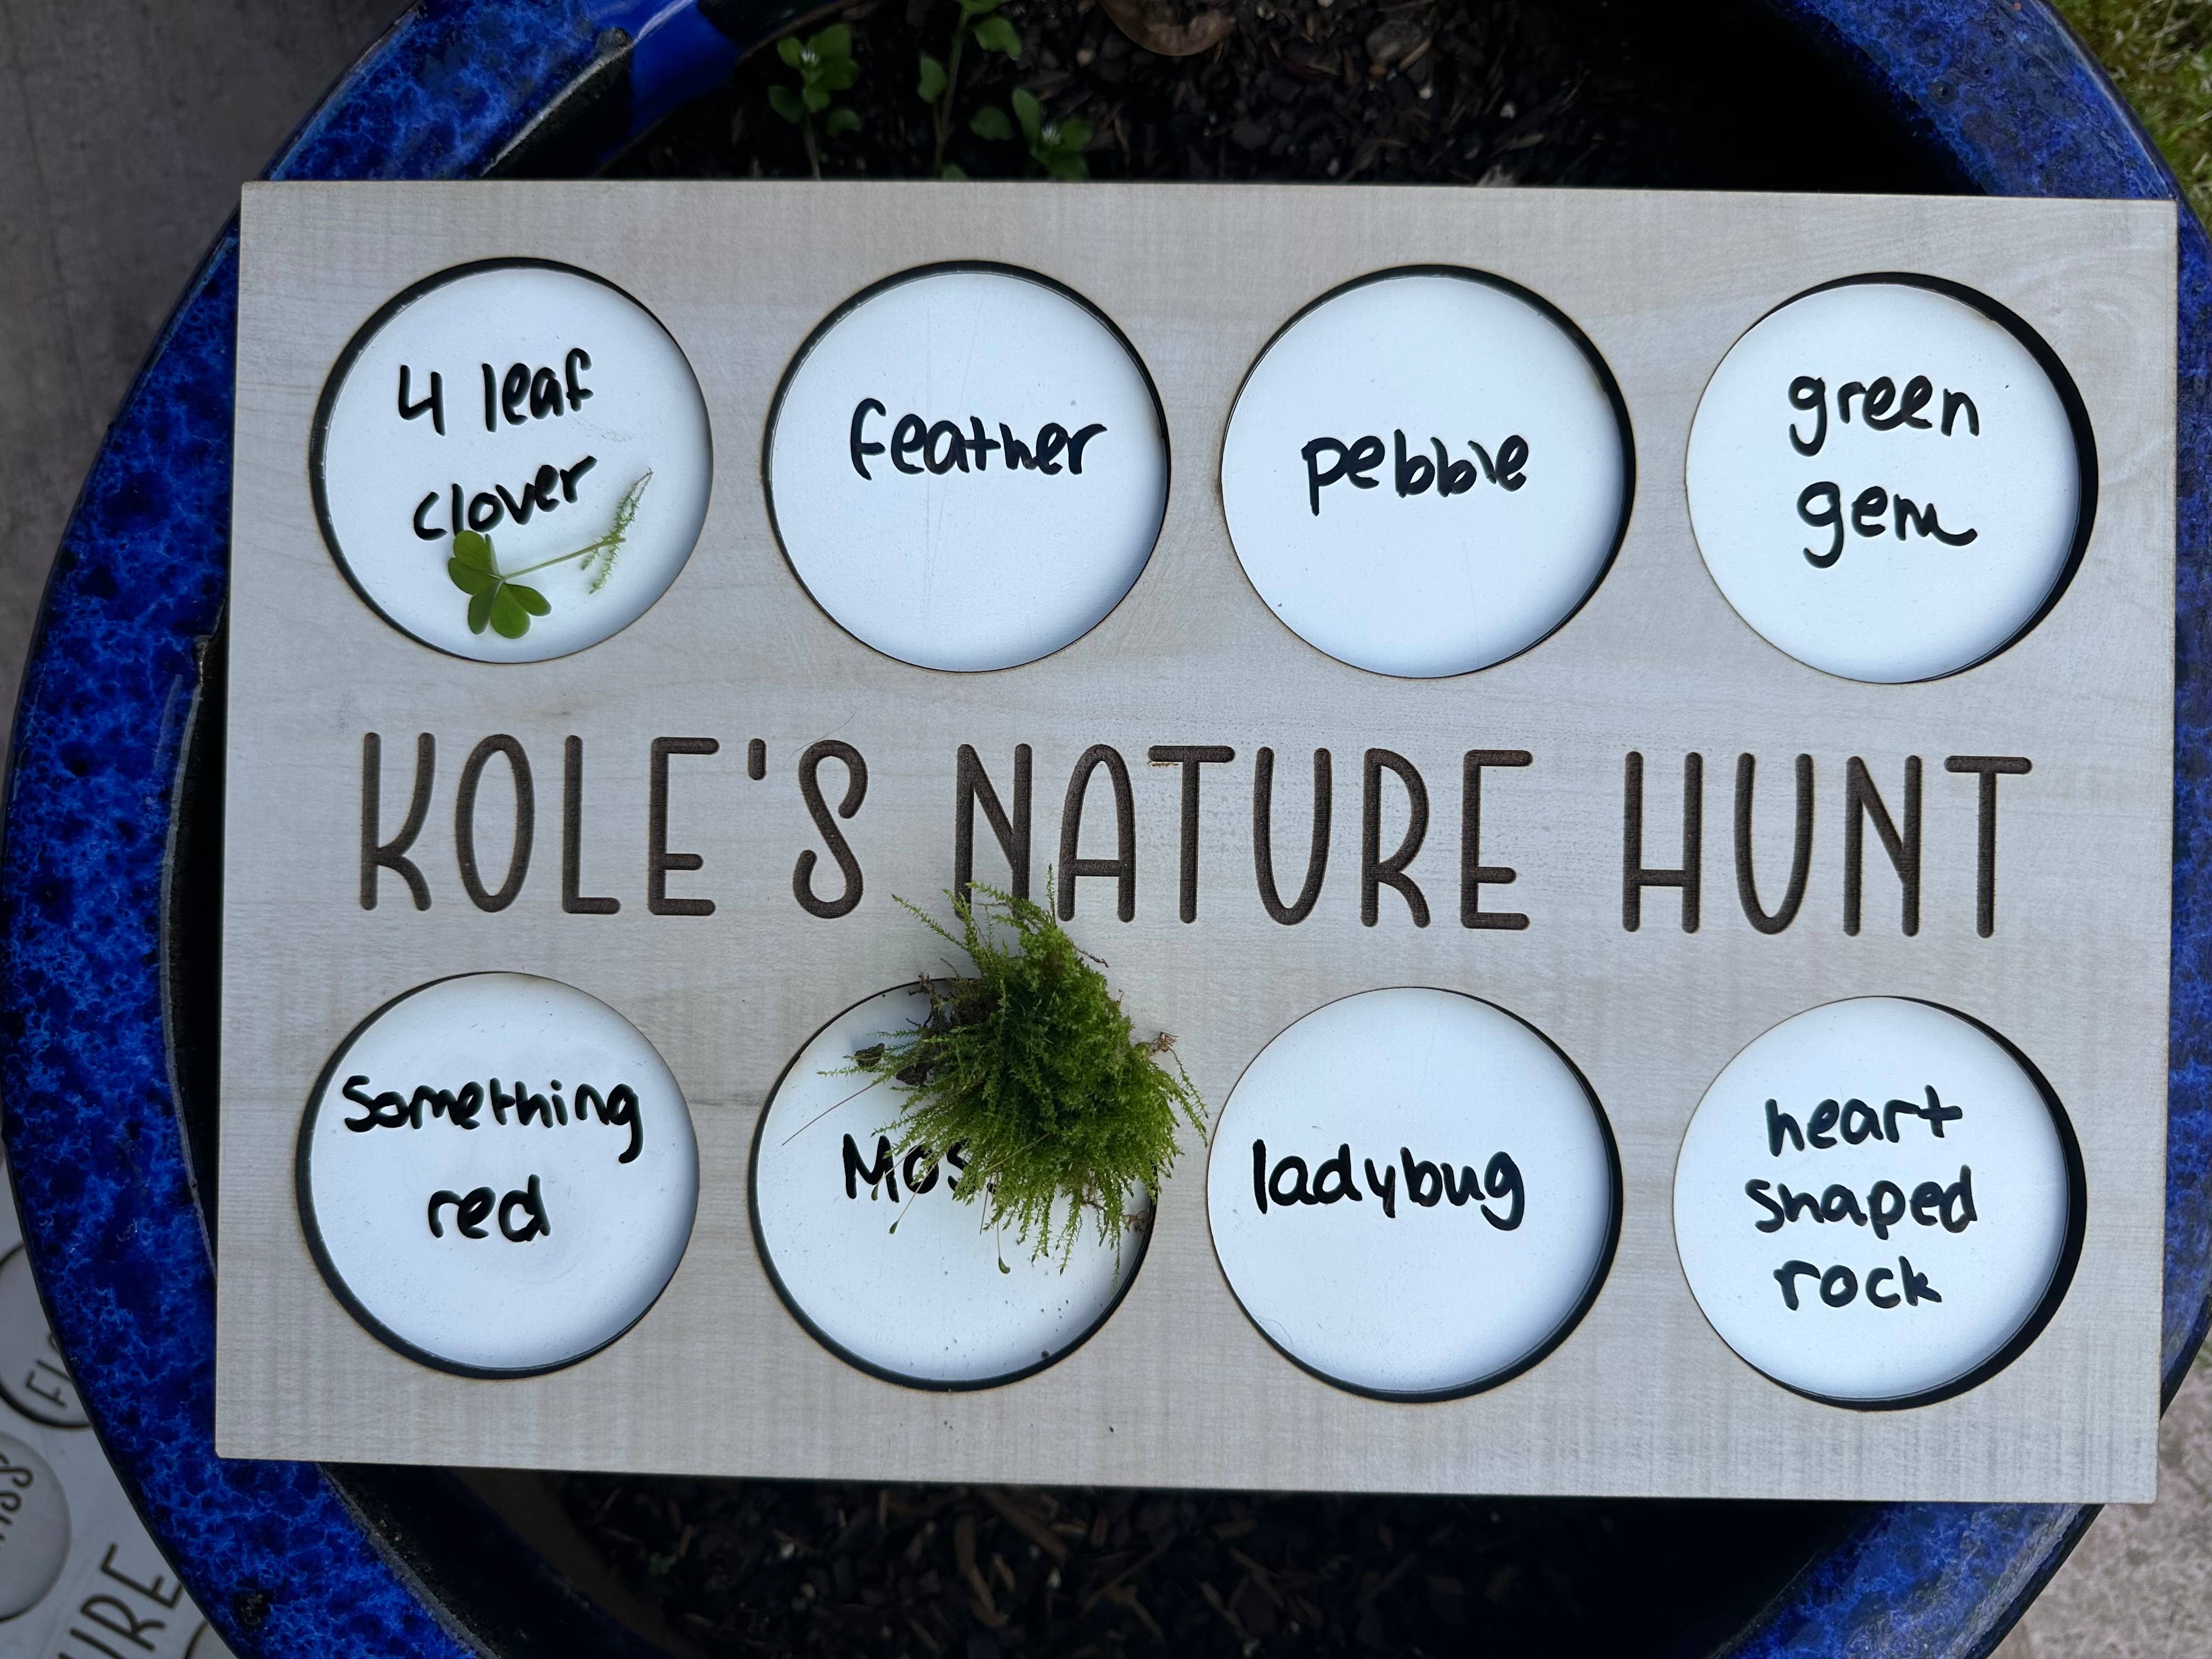 4 leaf
clover
feather
pebble
green
gem
KOLE'S NATURE HUNT
Something
red
Mos
ladybug
heart
shaped
rock